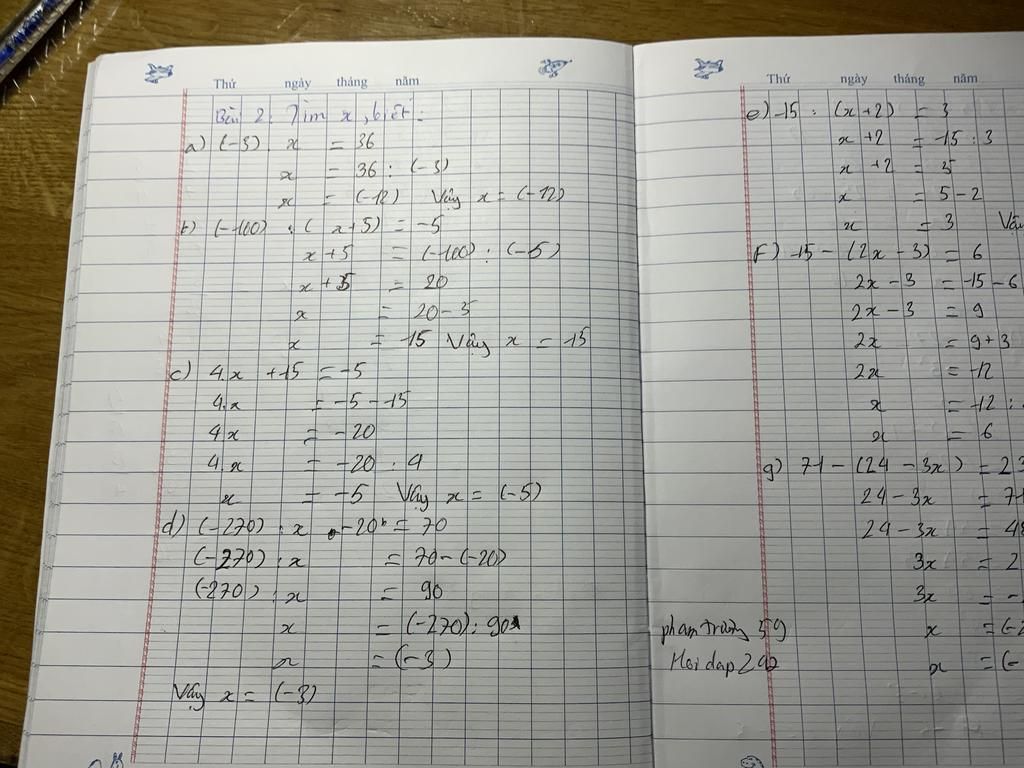 Thứ ngày tháng năm
Bài 2: Tìm x, biết:
a) (-3) . x = 36
x = 36 : (-3)
x = (-12) Vậy x = (-12)
b) (-100) : (x+5) = -5
x+5 = (-100) : (-5)
x+5 = 20
x = 20-5
x = 15 Vậy x = 15
c) 4.x + 15 = -5
4.x = -5 - 15
4x = -20
4.x = -20 : 4
x = -5 Vậy x = (-5)
d) (-270) : x - 20 = 70
(-270) : x = 70-(-20)
(-270) : x = 90
x = (-270) : 90
x = (-3)
Vậy x = (-3)
Thứ ngày tháng năm
e) 15 : (x+2) = 3
x+2 = 15 : 3
x+2 = 5
x = 5-2
x = 3 Vậ
f) 15 - (2x-3) = 6
2x-3 = 15-6
2x-3 = 9
2x = 9+3
2x = 12
x = 12 :
x = 6
g) 71 - (24-3x) = 23
24-3x = 71
24-3x = 48
3x = 2
3x = -
x = (-2
x = (-
phamtrang 59
Hoi dap 292